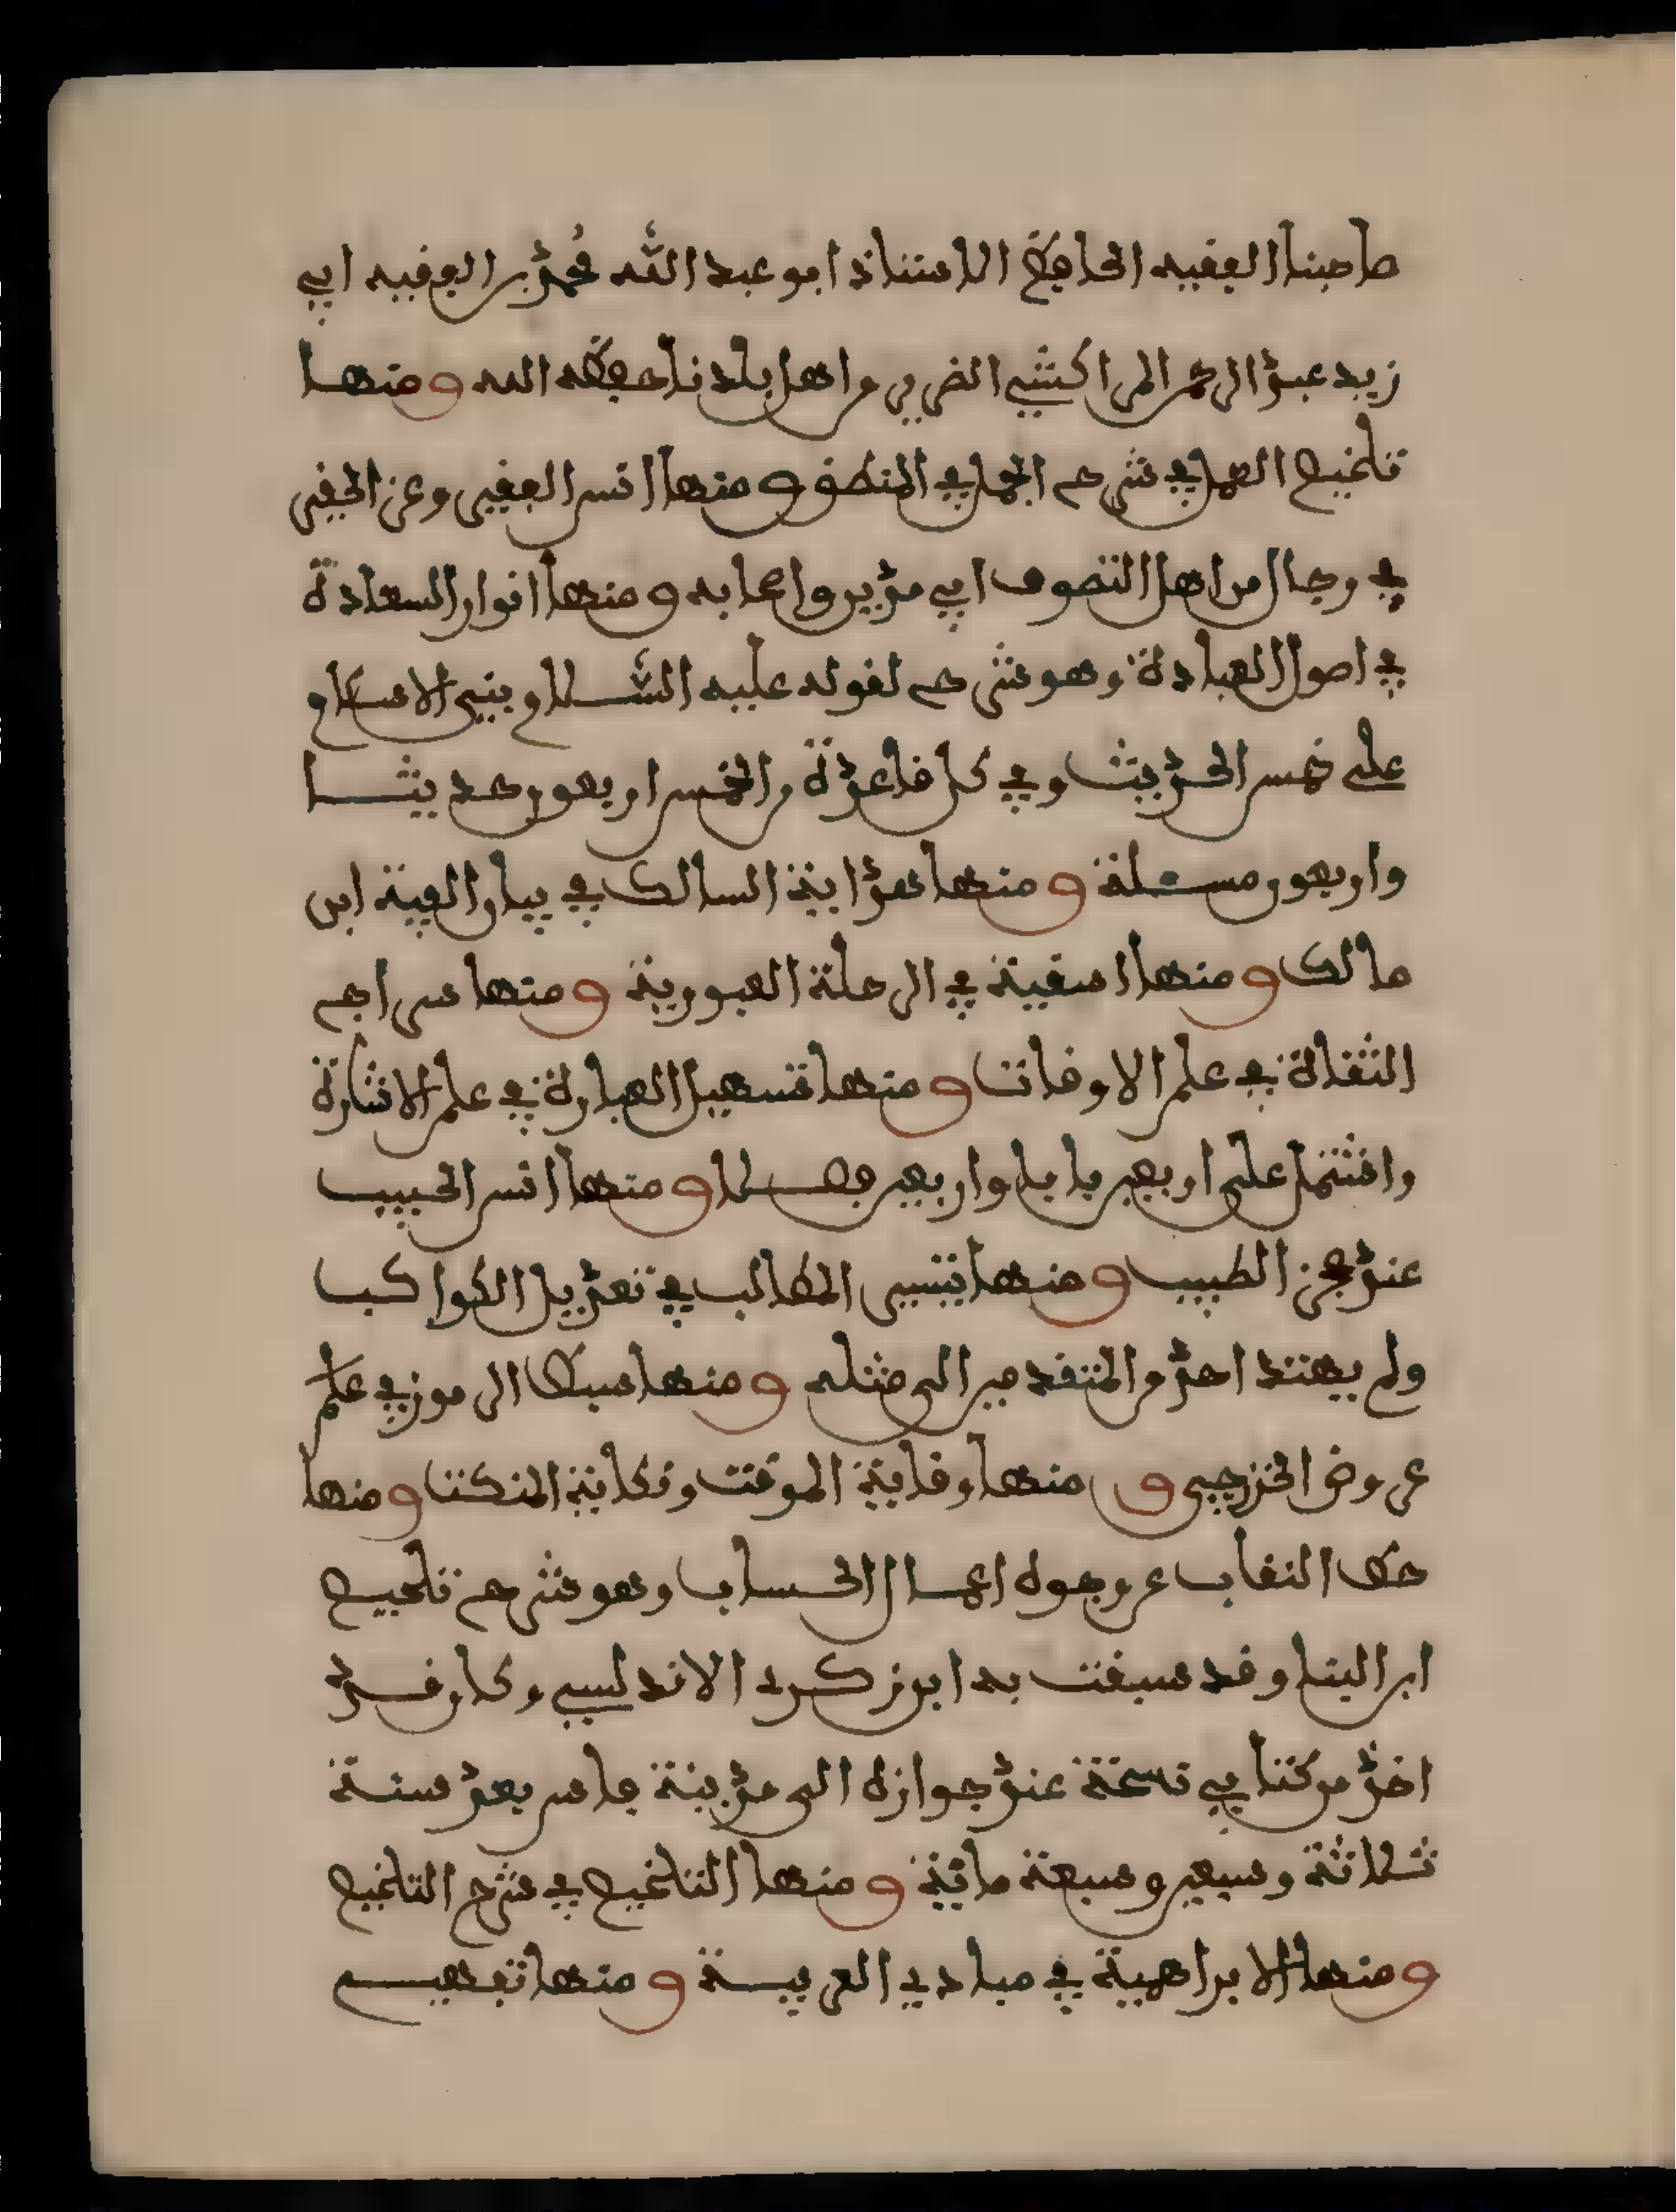 صاحبنا الفقيه الحافظ الاستاذ ابو عبد الله محمد بن الفقيه ابي
زيد عبد الرحمن المراكشي الضرير من اهل بلدنا حفظه الله ومنها
تلخيص العمل في شرح الجمل في المنطق ومنها انس الفقير وعز الحقير
في رجال من اهل التصوف ابي مدين واصحابه ومنها انوار السعادة
في اصول العبادة وهو شرح لقوله عليه السلام بني الاسلام
على خمس الحديث وفي كل قاعدة من الخمس اربعون حديثا
واربعون مسئلة ومنها هداية السالك في بيان الفية ابن
مالك ومنها اسفينة في الرحلة العبورية ومنها سراج
الثقاة في علم الاوقات ومنها تسهيل العبارة في علم الاشارة
واشتمل على اربعين بابا واربعين فصلا ومنها انس الحبيب
عند عجز الطبيب ومنها تيسير المطالب في تعديل الكواكب
ولم يهتد احد من المتقدمين الى مثله ومنها سبط الرموز في علم
عروض الخزرجي ومنها وقاية الموقت ونكاية المنكت ومنها
حط النقاب عن وجوه اعمال الحساب وهو شرح تلخيص
ابن البنا وقد سبقت به ابن زكريا الاندلسي وكان قد
اخذ من كتابي نسخة عند جوازه الى مدينة فاس بعد سنة
ثلاثة وسبعين وسبعة مائة ومنها التلخيص في شرح التلخيص
ومنها الابراهيمية في مبادي العربية ومنها تفهيم